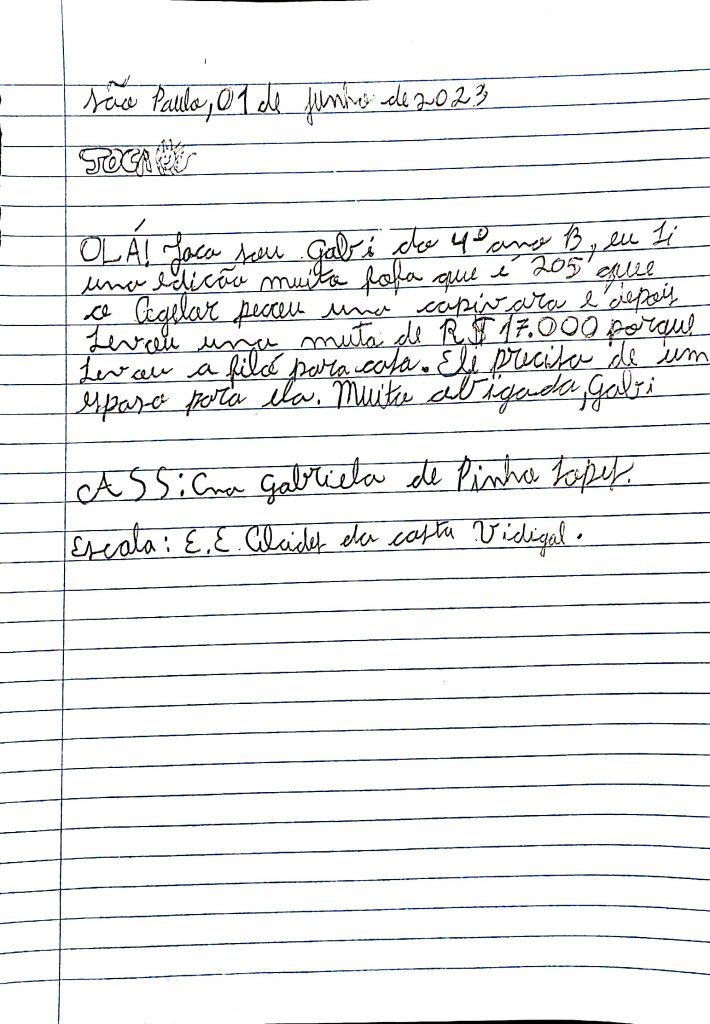 São Paulo, 01 de junho de 2023
JOCA
OLÁ! Joca sou Gabi do 4º ano B, eu li
uma edicão muito fofa que é 205 que
o Agelar peceu uma capivara e depois
Levou uma muta de R$ 17.000 porque
Levou a filó para casa. Ele precisa de um
espaso para ela. Muito obigada, Gabi
ASS: Ana Gabriela de Pinho Lopes.
Escola: E.E. Alcides da costa Vidigal.